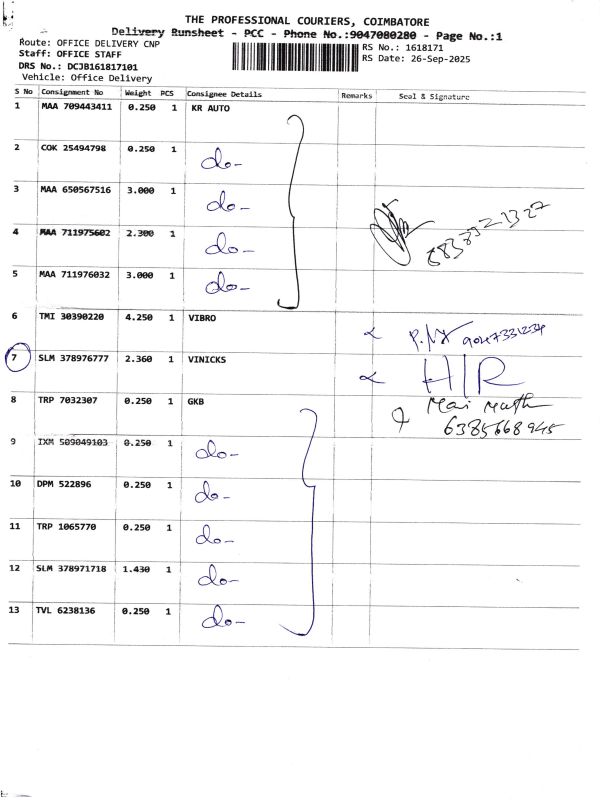 THE PROFESSIONAL COURIERS, COIMBATORE
Delivery Runsheet - PCC - Phone No.:9047080280 - Page No.:1
Route: OFFICE DELIVERY CNP
Staff: OFFICE STAFF
DRS No.: DCJB161817101
Vehicle: Office Delivery
RS No.: 1618171
RS Date: 26-Sep-2025
S No Consignment No Weight PCS Consignee Details Remarks Seal & Signature
1 MAA 709443411 0.250 1 KR AUTO
2 COK 25494798 0.250 1 do-
3 MAA 650567516 3.000 1 do-
4 MAA 711975602 2.300 1 do-
5 MAA 711976032 3.000 1 do-
6 TMI 30390220 4.250 1 VIBRO
7 SLM 378976777 2.360 1 VINICKS H/R
8 TRP 7032307 0.250 1 GKB
6385668945
9 IXM 509049103 0.250 1 do-
10 DPM 522896 0.250 1 do-
11 TRP 1065770 0.250 1 do-
12 SLM 378971718 1.430 1 do-
13 TVL 6238136 0.250 1 do-